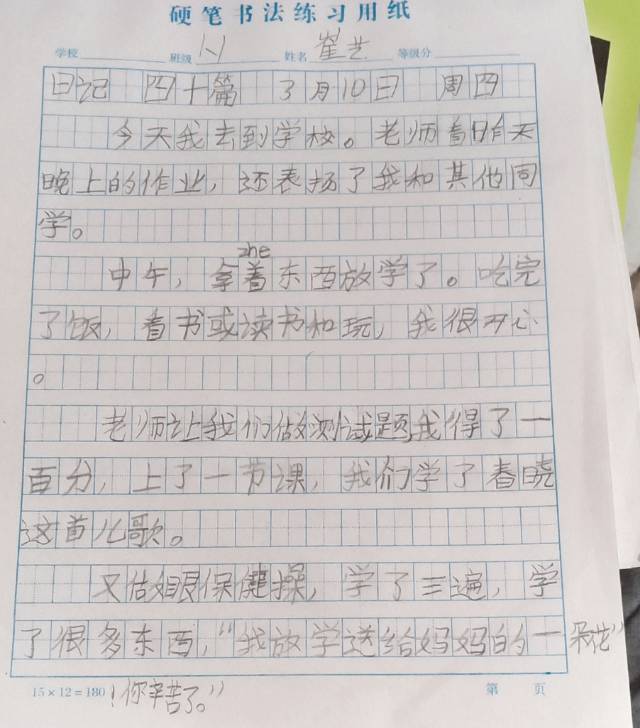 硬笔书法练习用纸
学校 班级 1、1 姓名 崔艺 等级分
日记 四十篇 3月10日 周四
今天我去到学校。老师看昨天
晚上的作业，还表扬了我和其他同
学。
zhe
中午，拿着东西放学了。吃完
了饭，看书或读书和玩，我很开心
。
老师让我们做测试题我得了一
百分，上了一节课，我们学了春晓
这首儿歌。
又做眼保健操，学了三遍，学
了很多东西，“我放学送给妈妈的一朵花”
15×12=180 ！你辛苦了。” 第 页